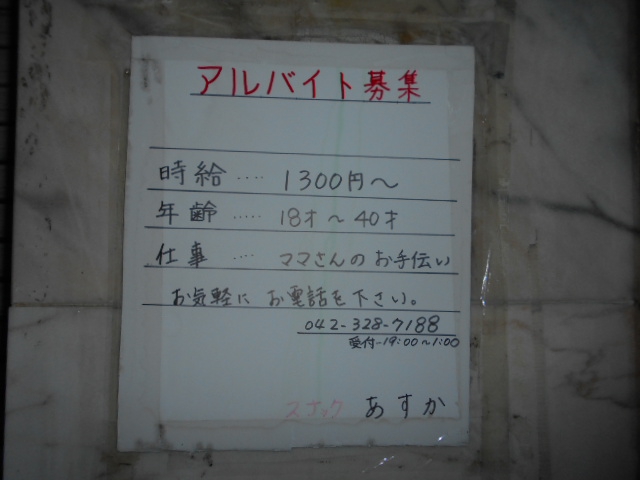 アルバイト募集
時給 ‥‥ 1300円～
年齢 ‥‥‥ 18才～40才
仕事 ‥‥ ママさんのお手伝い
お気軽に お電話を下さい。
042-328-7188
受付-19:00～1:00
スナック あすか